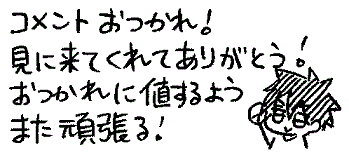 コメントおつかれ!
見に来てくれてありがとう!
おつかれに値するよう
また頑張る!